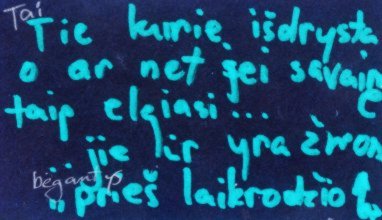 Tai
Tie kurie išdrysta
o ar net jei savaip
taip elgiasi...
jie ir yra žmon
bėgantys
prieš laikrodžio